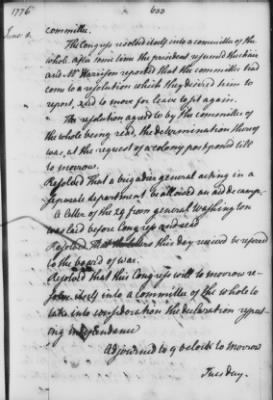 1776
633
June
committee.
The Congress resolved itself into a committee of the
whole. after some time the president resumed the chair
and Mr Harrison reported that the committee had
come to a resolution which they desired him to
report, and to move for leave to sit again.
The resolution agreed to by the committee of
the whole being read, the determination thereof
was, at the request of a colony postponed till
to morrow.
Resolved That a brigadier general acting in a
separate department be allowed an aid de camp.
A letter of the 29 from general Washington
was laid before Congress and read
Resolved That the letters this day received be referred
to the board of war.
Resolved That this Congress will to morrow re-
solve itself into a committee of the whole to
take into consideration the declaration respec-
ting independence
Adjourned to 9 oClock to morrow
Tuesday.